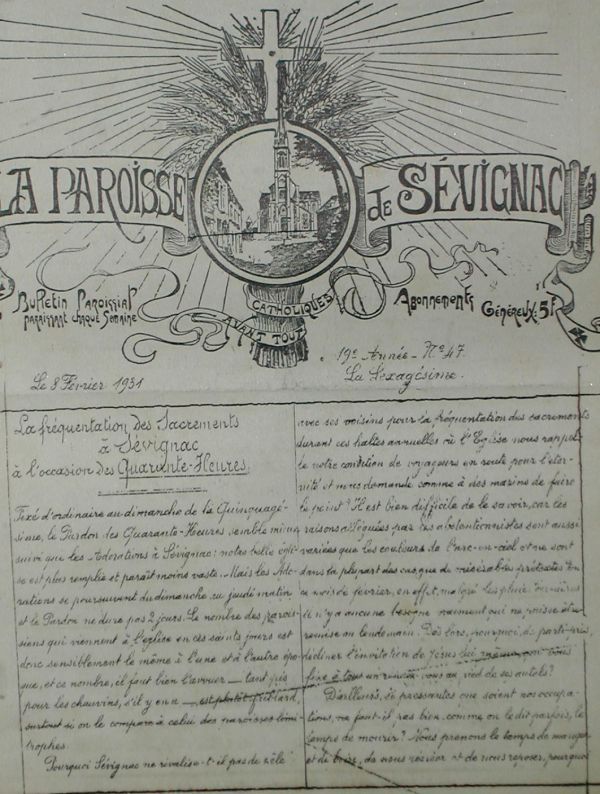 LA PAROISSE
de SÉVIGNAC
BULLETIN PAROISSIAL
PARAISSANT CHAQUE SEMAINE
CATHOLIQUES
AVANT TOUT
ABONNEMENTS
GÉNÉREUX: 5f
19e Année - No 47.
Le 8 Février 1931
La Sexagésime.
La fréquentation des Sacrements
à Sévignac
à l'occasion des Quarante-Heures.
Fixé d'ordinaire au dimanche de la Quinquagé-
sime, le Pardon des Quarante-Heures semble mieux
suivi que les Adorations à Sévignac: notre belle égli-
se est plus remplie et paraît moins vaste. Mais les Ado-
rations se poursuivent du dimanche au jeudi matin
et le Pardon ne dure pas 2 jours. Le nombre des parois-
siens qui viennent à l'église en ces saints jours est
donc sensiblement le même à l'une et à l'autre épo-
que, et ce nombre, il faut bien l'avouer — tant pis
pour les chauvins, s'il y en a — est plutôt
surtout si on le compare à celui des paroisses limi-
trophes.
Pourquoi Sévignac ne rivalise-t-il pas de zèle
avec ses voisins pour la fréquentation des sacrements
durant ces haltes annuelles où l'Eglise nous rappel-
le notre condition de voyageurs en route pour l'éter-
nité et nous demande comme à des marins de faire
le point? Il est bien difficile de le savoir, car les
raisons alléguées par les abstentionnistes sont aussi
variées que les couleurs de l'arc-en-ciel et ne sont
dans la plupart des cas, que de misérables prétextes. En
ce mois de février, en effet, malgré les pluies
il n'y a aucune besogne vraiment qui ne puisse être
remise au lendemain. Dès lors, pourquoi, de parti-pris,
décliner l'invitation de Jésus qui
fixe à tous un rendez-vous au pied de ses autels?
D'ailleurs, si pressantes que soient nos occupa-
tions, ne faut-il pas bien, comme on le dit parfois, le
temps de mourir? Nous prenons le temps de manger
et de boire, de nous raser et de nous reposer, pourquoi